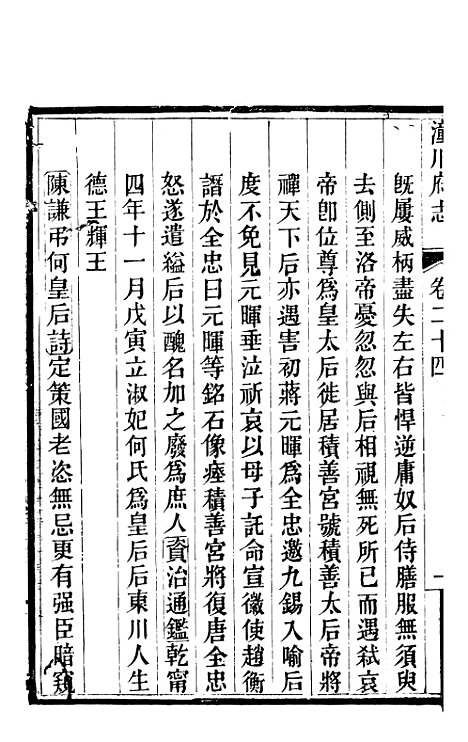 潼川府志
卷二十四
一
既屢威柄盡失左右皆悍逆庸奴后侍膳服無須臾
去側至洛帝憂忽忽與后相視無死所已而遇弒哀
帝卽位尊為皇太后徙居積善宮號積善太后帝將
禪天下后亦遇害初蔣元暉為全忠邀九錫入喻后
度不免見元暉垂泣祈哀以母子託命宣徽使趙衡
譖於全忠曰元暉等銘石像瘞積善宮將復唐全忠
怒遂遣縊后以醜名加之廢為庶人資治通鑑乾甯
四年十一月戊寅立淑妃何氏為皇后后東川人生
德王輝王
陳謙弔何皇后詩定策國老恣無忌更有强臣暗窺